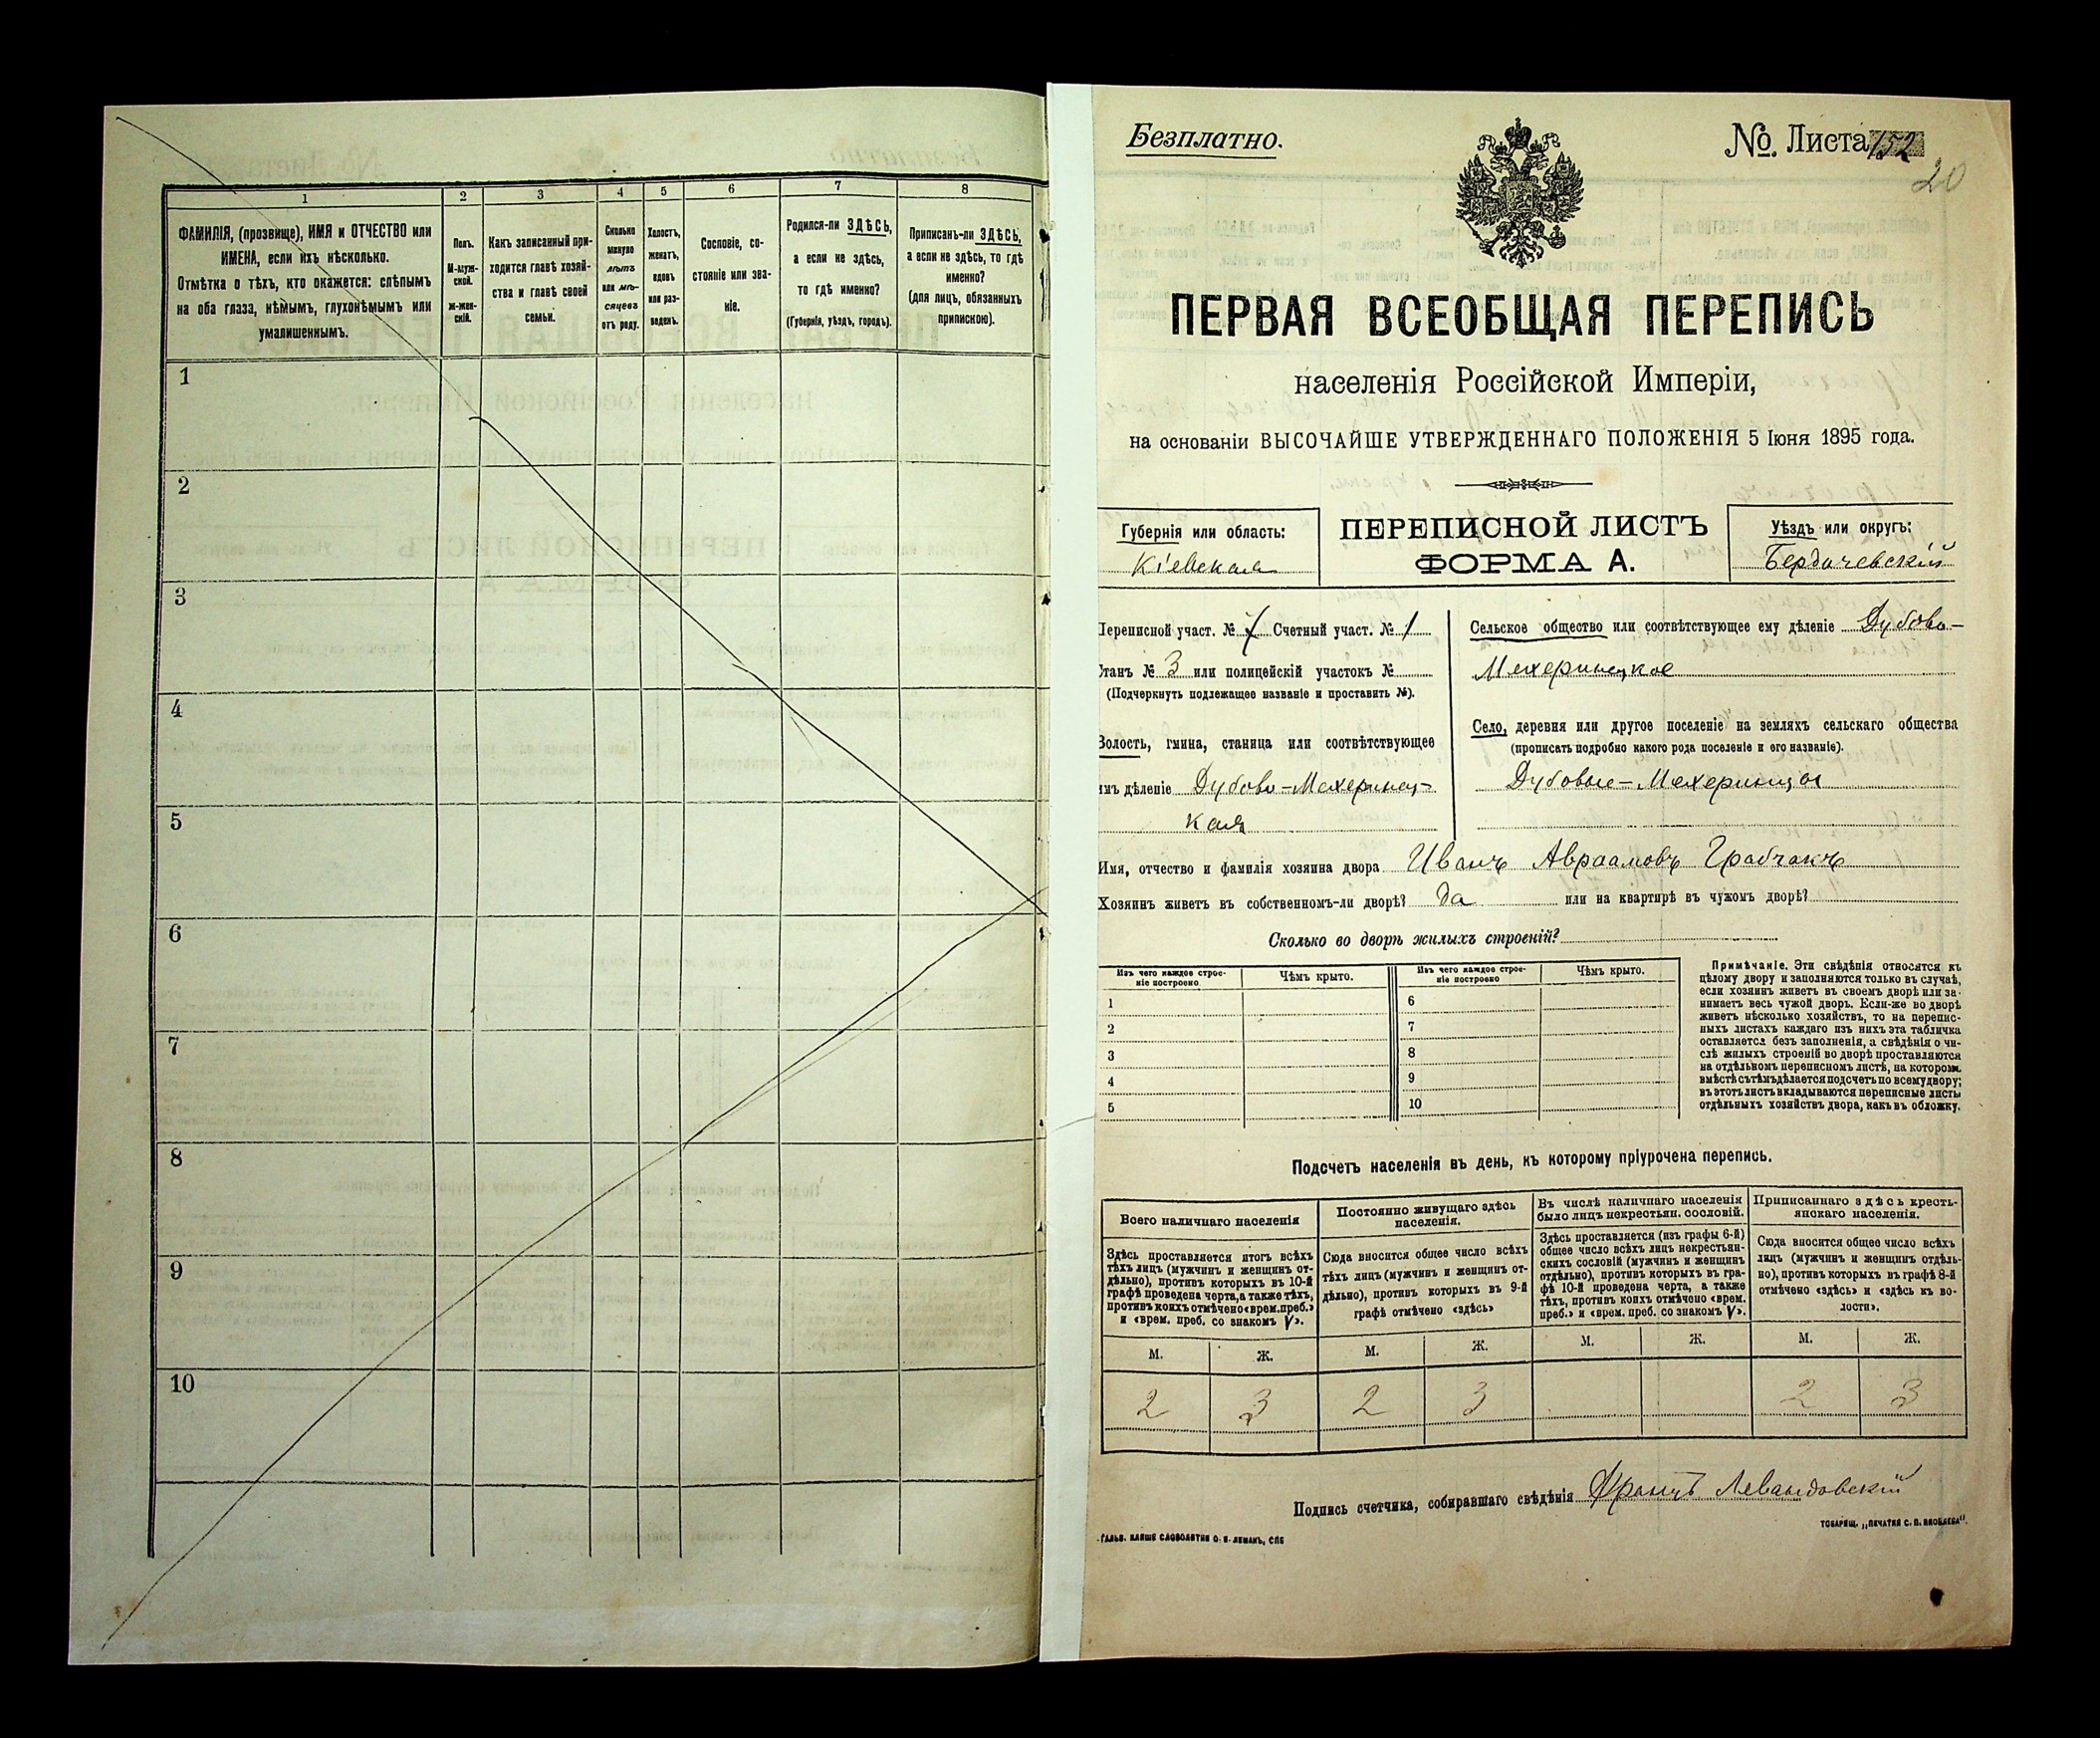 1
2
3
4
5
6
7
8
ФАМИЛІЯ, (прозвище), ИМЯ и ОТЧЕСТВО или
ИМЕНА, если ихъ нѣсколько.
Отмѣтка о тѣхъ, кто окажется: слѣпымъ
на оба глаза, нѣмымъ, глухонѣмымъ или
умалишеннымъ.
Полъ.
М-муж-
ской.
Ж-жен-
скій.
Какъ записанный при-
ходится главѣ хозяй-
ства и главѣ своей
семьи.
Сколько
минуло
лѣтъ
или мѣ-
сяцевъ
отъ роду.
Холостъ,
женатъ,
вдовъ
или раз-
веденъ.
Сословіе, со-
стояніе или зва-
ніе.
Родился-ли ЗДѢСЬ,
а если не здѣсь,
то гдѣ именно?
(Губернія, уѣздъ, городъ).
Приписанъ-ли ЗДѢСЬ,
а если не здѣсь, то гдѣ
именно?
(для лицъ, обязанныхъ
припискою).
1
2
3
4
5
6
7
8
9
10
Безплатно.
№. Листа 152
20
ПЕРВАЯ ВСЕОБЩАЯ ПЕРЕПИСЬ
населенія Россійской Имперіи,
на основаніи ВЫСОЧАЙШЕ УТВЕРЖДЕННАГО ПОЛОЖЕНІЯ 5 Іюня 1895 года.
Губернія или область:
Кіевская
ПЕРЕПИСНОЙ ЛИСТЪ
ФОРМА А.
Уѣздъ или округъ:
Бердичевскій
Переписной участ. № 7 Счетный участ. № 1
Станъ № 3 или полицейскій участокъ №
(Подчеркнуть подлежащее названіе и проставить №).
Волость, гмина, станица или соотвѣтствующее
имъ дѣленіе Дубово-Махеринец-
кая
Сельское общество или соотвѣтствующее ему дѣленіе Дубово-
Махеринецкое
Село, деревня или другое поселеніе на земляхъ сельскаго общества
(прописать подробно какого рода поселеніе и его названіе).
Дубовые-Махеринцы
Имя, отчество и фамилія хозяина двора Иванъ Авраамовъ Грабчакъ
Хозяинъ живетъ въ собственномъ-ли дворѣ? да или на квартирѣ въ чужомъ дворѣ?
Сколько во дворѣ жилыхъ строеній?
Изъ чего каждое строе-
ніе построено
Чѣмъ крыто.
Изъ чего каждое строе-
ніе построено
Чѣмъ крыто.
1
2
3
4
5
6
7
8
9
10
Примѣчаніе. Эти свѣдѣнія относятся къ
цѣлому двору и заполняются только въ случаѣ,
если хозяинъ живетъ въ своемъ дворѣ или за-
нимаетъ весь чужой дворъ. Если-же во дворѣ
живетъ нѣсколько хозяйствъ, то на перепис-
ныхъ листахъ каждаго изъ нихъ эта табличка
оставляется безъ заполненія, а свѣдѣнія о чи-
слѣ жилыхъ строеній во дворѣ проставляются
на отдѣльномъ переписномъ листѣ, на которомъ
вмѣстѣ съ тѣмъ дѣлается подсчетъ по всему двору;
въ этотъ листъ вкладываются переписные листы
отдѣльныхъ хозяйствъ двора, какъ въ обложку.
Подсчетъ населенія въ день, къ которому пріурочена перепись.
Всего наличнаго населенія
Постоянно живущаго здѣсь
населенія.
Въ числѣ наличнаго населенія
было лицъ некрестьян. сословій.
Приписаннаго здѣсь кресть-
янскаго населенія.
Здѣсь проставляется итогъ всѣхъ
тѣхъ лицъ (мужчинъ и женщинъ от-
дѣльно), противъ которыхъ въ 10-й
графѣ проведена черта, а также тѣхъ,
противъ коихъ отмѣчено «врем. преб.»
и «врем. преб. со знакомъ V».
Сюда вносится общее число всѣхъ
тѣхъ лицъ (мужчинъ и женщинъ от-
дѣльно), противъ которыхъ въ 9-й
графѣ отмѣчено «здѣсь»
Здѣсь проставляется (изъ графы 6-й)
общее число всѣхъ лицъ некрестьян-
скихъ сословій (мужчинъ и женщинъ
отдѣльно), противъ которыхъ въ гра-
фѣ 10-й проведена черта, а также
тѣхъ, противъ коихъ отмѣчено «врем.
преб.» и «врем. преб. со знакомъ V».
Сюда вносится общее число всѣхъ
лицъ (мужчинъ и женщинъ отдѣль-
но), противъ которыхъ въ графѣ 8-й
отмѣчено «здѣсь» и «здѣсь къ во-
лости».
М. Ж. М. Ж. М. Ж. М. Ж.
2 3 2 3 2 3
Подпись счетчика, собиравшаго свѣдѣнія Францъ Левандовскій
ГАЛЬВ. КЛИШЕ СЛОВОЛИТНИ О. И. ЛЕМАНЪ, СПБ
ТОВАРИЩ. „ПЕЧАТНЯ С. П. ЯКОВЛЕВА".